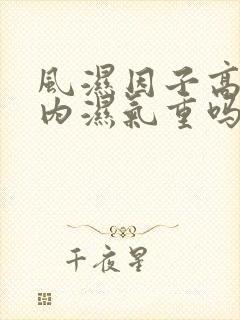 風濕因子高
內濕氣重嗎
千夜星